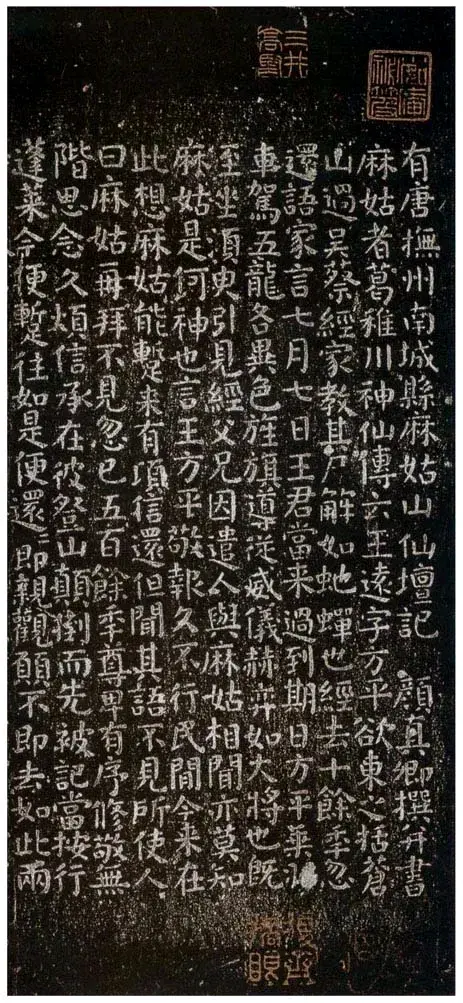 有唐撫州南城縣麻姑山仙壇記 顏真卿撰并書
麻姑者葛稚川神仙傳云王遠字方平欲東之括蒼
山過吳蔡經家教其尸解如虵蟬也經去十餘秊忽
還語家言七月七日王君當来過到期日方平乘羽
車駕五龍各異色旌旗導從威儀赫弈如大將也既
至坐須臾引見經父兄因遣人與麻姑相聞亦莫知
麻姑是何神也言王方平敬報久不行民間今来在
此想麻姑能蹔来有頃信還但聞其語不見所使人
曰麻姑再拜不見忽已五百餘秊尊卑有序修敬無
階思念久煩信承在彼登山顛倒而先被記當按行
蓬莱今便蹔往如是便還〻即親觀願不即去如此兩
三井高堅